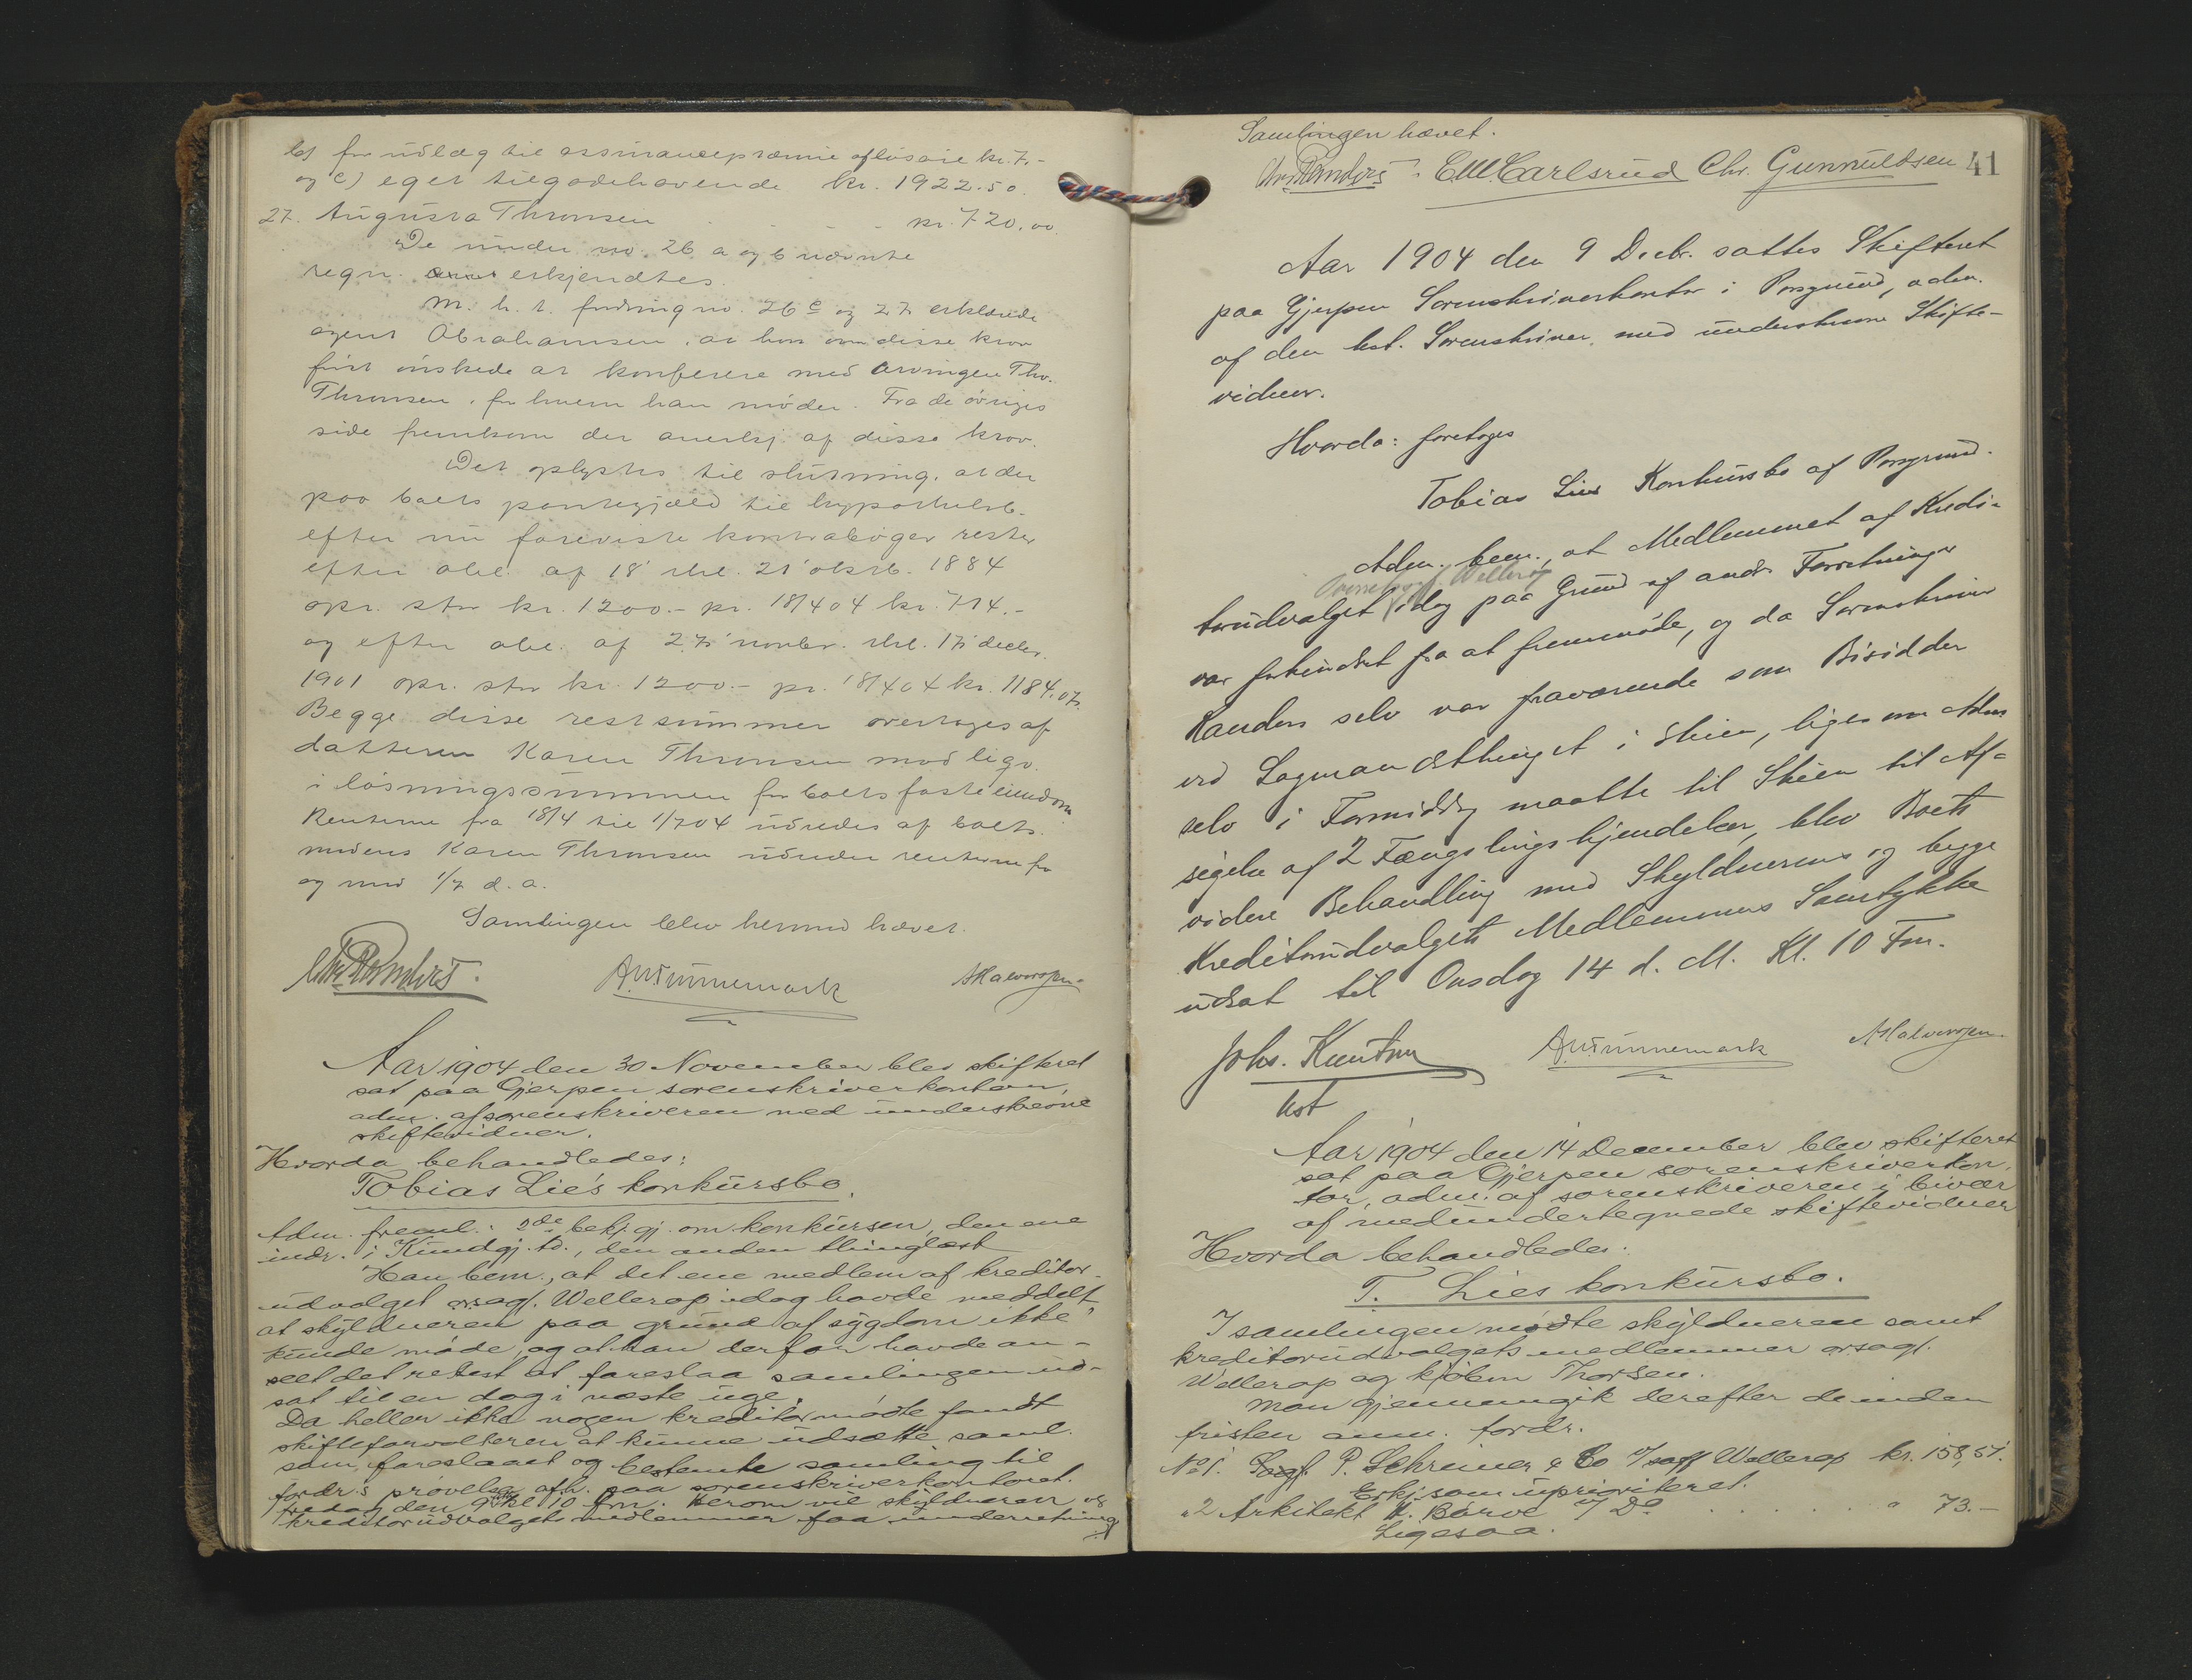 b) for udlæg til assurancepræmie afløsaie kr. 7.-
og c) eget tilgodehavende kr. 1922.50
27. Augusta Thronsen kr. 720.00
De under no. 26 a og b nævnte
regn. erkjendtes.
M. h. t. fordring no. 26 c og 27 erklærede
agent Abrahamsen, at han om disse krav
først ønskede at konferere med arvingen Thv.
Thronsen, for hvem han møder. Fra de øvriges
side fremkom der anerkj. af disse krav.
Det oplystes til slutning, at der
paa boets pantegjæld til hypothekb.
efter nu foreviste kontrabøger rester
efter obl. af 18' thl. 21' oktb. 1884
opr. stor kr. 1200.- pr. 18/4 04 kr. 714.-
og efter obl. af 27' novbr. thl. 17' decbr.
1901 opr. stor kr. 1200.- pr. 18/4 04 kr. 1184.07.
Begge disse restsummer overtages af
datteren Karen Thronsen mod liqv.
i løsningssummen for boets faste eiendom
Renterne fra 18/4 til 1/7 04 udredes af boet,
medens Karen Thronsen udreder renterne fra
og med 1/7 d. a.
Samlingen blev hermed hævet.
Chr. Randers. A. W. Tinnemark AHalvorsen.
Aar 1904 den 30 November blev skifteret
sat paa Gjerpen sorenskriverkontor,
adm. af sorenskriveren med underskrevne
skiftevidner.
Hvorda behandledes:
Tobias Lie's konkursbo.
Adm. freml.: 2de bekj.gj. om konkursen, den ene
indr. i Kundgj.td., den anden thinglæst
Han bem., at det ene medlem af kreditor-
udvalget orsagf. Wellerop idag havde meddelt,
at skyldneren paa grund af sygdom ikke
kunde møde, og at han derfor havde an-
seet det rettest at foreslaa samlingen ud-
sat til en dag i næste uge.
Da heller ikke nogen kreditor mødte fandt
skifteforvalteren at kunne udsætte saml.
som foreslaaet og bestemte samling til
fordr.s prøvelse afh. paa sorenskriverkontoret.
fredag den 9 kl 10 fm. Herom vil skyldneren og
kreditorudvalgets medlemmer faa underretning
Samlingen hævet.
Chr. Randers. C.M. Carlsrud Chr. Gunnuldsen 41
Aar 1904 den 9 Decbr. sattes Skifteret
paa Gjerpen Sorenskriverkontor i Porsgrund, adm.
af den kst. Sorenskriver med underskrevne Skifte-
vidner.
Hvorda: foretoges
Tobias Lies Konkursbo af Porsgrund.
Adm. bem., at Medlemmet af Kredi-
Overretssagf. Wellerop
torudvalget idag paa Grund af andre Forretninger
var forhindret fra at fremmøde, og da Sorenskriver
Randers selv var fraværende som Bisidder
ved Lagmandsthinget i Skien, ligesom Adm
selv i Formiddag maatte til Skien til Af-
sigelse af 2 Fængslingskjendelser, blev Boets
videre Behandling med Skyldnerens og begge
Kreditorudvalgets Medlemmers Samtykke
udsat til Onsdag 14 d. M. Kl. 10 Fm.
Johs. Knutson A. W. Tinnemark AHalvorsen.
kst
Aar 1904 den 14 December blev skifteret
sat paa Gjerpen sorenskriverkon-
tor, adm. af sorenskriveren i bivær
af medundertegnede skiftevidner
Hvorda behandledes:
T. Lies konkursbo.
I samlingen mødte skyldneren samt
kreditorudvalgets medlemmer orsagf.
Wellerop og kjøbm Thorsen.
Man gjennemgik derefter de inden
fristen anm. fordr.
No 1. Sagf. P. Schreiner & Co v/ sagf Wellerop kr. 158,51.
Erkj. som uprioriteret.
" 2 Arkitekt H. Børve v/ Do " 73.-
Ligesaa.